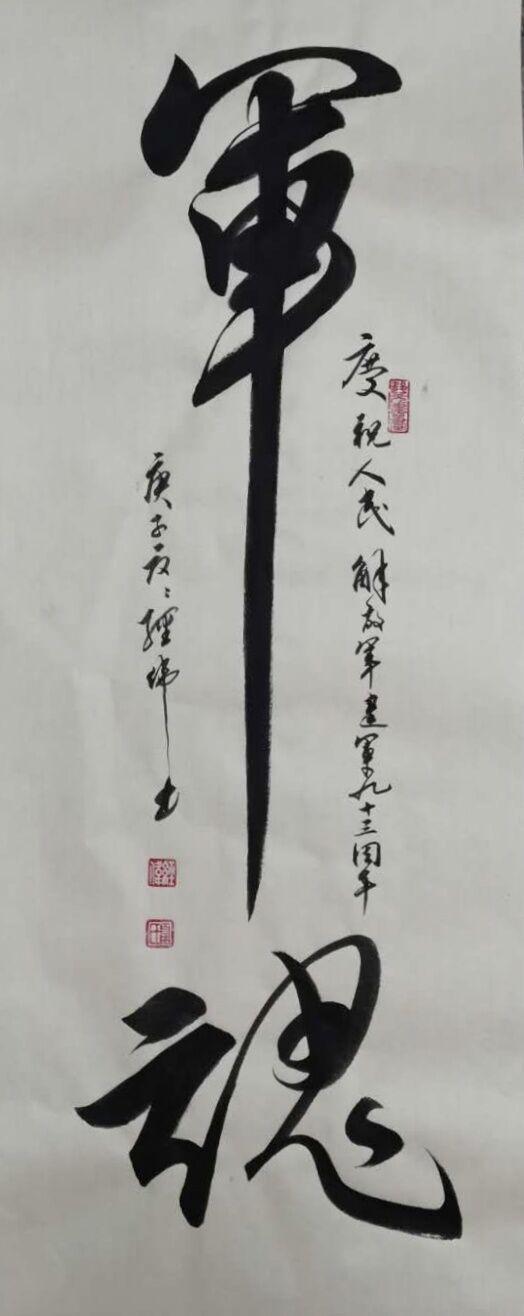 軍魂
慶祝人民解放军建軍九十三周年
庚子夏経緯書